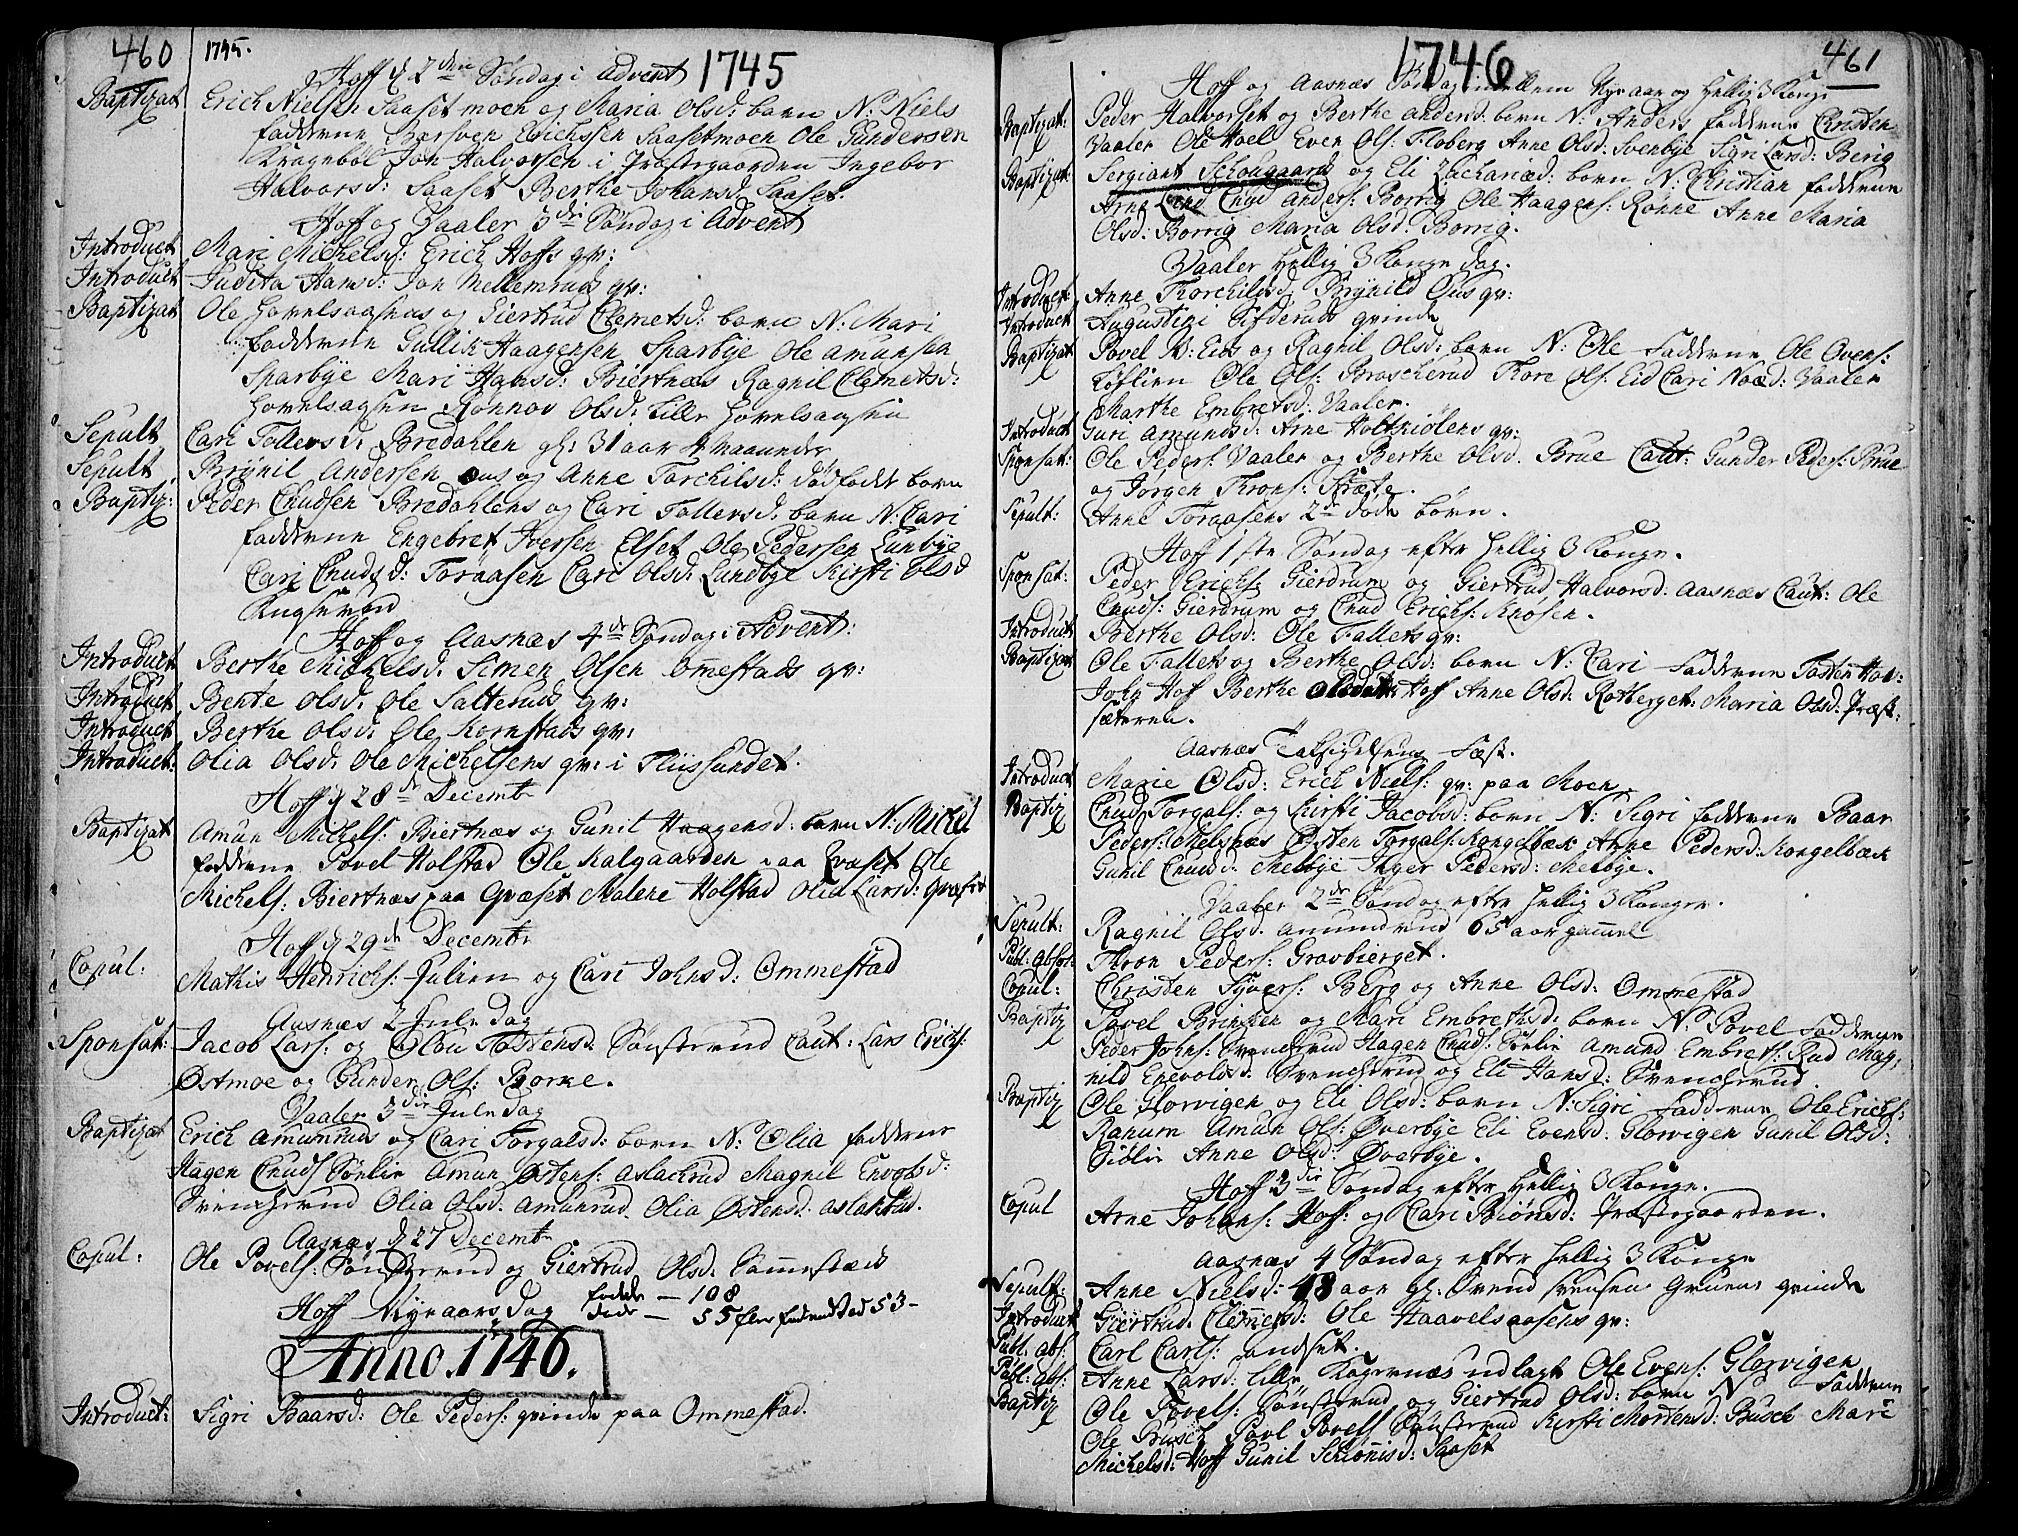 460 1745. 1745
Hoff d 2den Søndag i Advent
Baptizat Erich Nielsen Saaset moen og Maria Olsd: barn N: Niels
fadderne Erichssen Saasetmoen Ole Gundersen
Kragebøl Jon Halvorsen i Præstegaarden Ingebor
Halvorsd: Saaset Berthe Johansd: Saaset.
Hoff og Vaaler 3die Søndag i Advent
Introduct Mari Michelsd: Erich Hoffs qv:
Introduct Judita Hansd: Jon Mellemruds qv:
Baptizat Ole Hovelsaasens og Giertrud Clemetsd: barn N: Mari
fadderne Gullik Haagensen Sparbye Ole Amunsen
Sparbye Mari Hansd: Biertnæs Ragnil Clemetsd:
Hovelsaasen Rønnov Olsd: Lille Hovelsaasen
Sepult Cari Tollersd: Bredahlen gl: 31 aar 4 maaneder
Sepult Brynil Andersen Ous og Anne Torchilsd: dødfødt barn
Baptiz: Peder Chudsen Bredahlens og Cari Tollersd: barn N: Cari
fadderne Engebret Iversen Elset Ole Pedersen Lunbye
Cari Chudsd: Toraasen Cari Olsd: Lundbye Kirsti Olsd

Hoff og Aasnæs 4de Søndag i Advent:
Introduct Berthe Michelsd: Simen Olsen Ommestads qv:
Introduct Bente Olsd: Ole Salteruds qv:
Introduct Berthe Olsd: Ole Kornstads qv:
Introduct: Olia Olsd: Ole Michelsens qv: i Fliissundet.
Hoff d 28de Decembr
Baptizat Amun Michels: Biertnæs og Gunil Haagensd: barn N: Mickel
fadderne Povel Holstad Ole Kalgaarden paa Qvæset Ole
Michels: Biertnæs paa Qvæset Malene Holstad Olia Larsd: Qvæset
Hoff d 29de Decembr
Copul: Mathis Henrichs: Julien og Cari Johnsd: Ommestad
Aasnæs 2 Jule dag
Sponsat: Jacob Lars: og Olou Tostensd: Sønsterud Caut: Lars Erichs:
Østmoe og Gunder Ols: Borke.
Vaaler 3die Juledag
Baptizat Erich Amunruds og Cari Torgalsd: barn N: Olia fadderne
Hagen Chuds: Sønlie Amun Østens: Aslackrud Magnil Envolsd:
Svencherud Olia Olsd: Amunrud Olia Østensd: Aslakrud.
Aasnæs d 27 Decembr
Copul: Ole Povels: Sønsterud og Giertrud Olsd: Sommestad
Hoff Nyaarsdag fødde — 108
døde — 55 flere fødde end død 53 –
Anno. 1746.
Introduct: Sigri Baarsd: Ole Peders: qvinde paa Ommestad.
1746 461
Hoff og Aasnæs Søndag imellem Nyeaar og Hellig 3 Konge
Baptizat: Peder Halvorset og Berthe Andersd: barn N: Anders fadderne Christen
Vaaler Ole Hoel Even Ols: Floberg Anne Olsd: Svenbye Sigri Larsd: Berig
Baptizat: Sergiant Schougaard og Eli Zachariæd: barn N: Christian fadderne
Arne Lund Chud Anders: Borrig Ole Haagens: Rønne Anne Maria
Olsd: Borrig Maria Olsd: Borrig.
Vaaler Hellig 3 Konge dag.
Introduct: Anne Torchilsd: Brynild Ous qv:
Introduct Augustini qvinde
Baptizat Povel N: Eids og Ragnil Olsd: barn N: Ole fadderne Ole Ovens:
Løflien Ole Ols: Brascherud Tore Ols: Eid Cari Noæd: Vaaler
Marthe Embretsd: Vaaler.
Introduct Guri Amundsd: Arne Holtkiølens qv:
Sponsat: Ole Peders: Vaaler og Berthe Olsd: Brue Caut: Gunder Peders: Brue
og Jørgen Trons: Kræte.
Sepult: Anne Toraasens 2de døde børn.
Hoff 1ste Søndag efter Hellig 3 Konge.
Sponsat: Peder Erichs: Gierdrum og Giertrud Halvorsd: Aasnæs Caut: Ole
Chuds: Gierdrum og Chud Erichs: Knosen.
Introduct Berthe Olsd: Ole Fallets qv:
Baptizat Ole Fallets og Berthe Olsd: barn N: Cari fadderne Tosten Hof:
Hof Berthe Olsdat: Hoff Anne Olsd: Rotberget: Maria Olsd: Præst:
sæteren.
Aasnæs Taksigelsens Fæst.
Introduct Marie Olsd: Erich Niels: qv: paa Moen
Baptiz Chud Torgals: og Kirsti Jacobsd: barn N: Sigri fadderne Baar
Peders: Melsnæs Østen Torgals: Kongelbæk Anne Pedersd: Kongelbæk
Gunil Chudsd: Melbye Inger Pedersd: Melbye.
Vaaler 2de Søndag efter Hellig 3 Konger.
Sepult: Ragnil Olsd: Amundrud 65 aar gammel
Publ: Absol: Thron Peders: Gravbierget.
Copul: Christen Syvers: Berg og Anne Olsd: Ommestad
Baptiz Povel Brinken og Mari Embrethsd: barn N: Povel fadderne
Peder Johns: Svencherud Hagen Chuds: Sønlie Amund Embrets: Rud Mag,
nild Enevolsd: Svencherud og Eli Hansd: Svencherud.
Baptiz Ole Glorvigen og Eli Olsd: barn N: Sigri fadderne Ole Erichs:
Ranum Amun Ols: Øverbye Eli Evensd: Glorvigen Gunil Olsd:
Siølie Anne Olsd: Øverbye.
Hoff 3die Søndag efter Hellig 3 Konge.
Copul Arne Johans: Hoff: og Cari Biønsd: Præstegaarden.
Aasnæs 4 Søndag efter Hellig 3 Konge
Sepult: Anne Nielsd: 48 aar gl: Svensen Gruens qvinde
Introduct Giertrud Clemmetsd: Ole Haavelsaasens qv:
Publ: abs: Carl Carls: Sandset.
Publ: abs: Anne Larsd: Lille Kagernæs udlagt Ole Evens: Glorvigen
Baptiz Ole Povels: Sønsterud og Giertrud Olsd: barn N: fadderne
Ole Busch Povl Povels Sønsterud Kirsti Mortensd: Busch Mari
Michelsd: Hoff Gunil Schionisd: Saaset